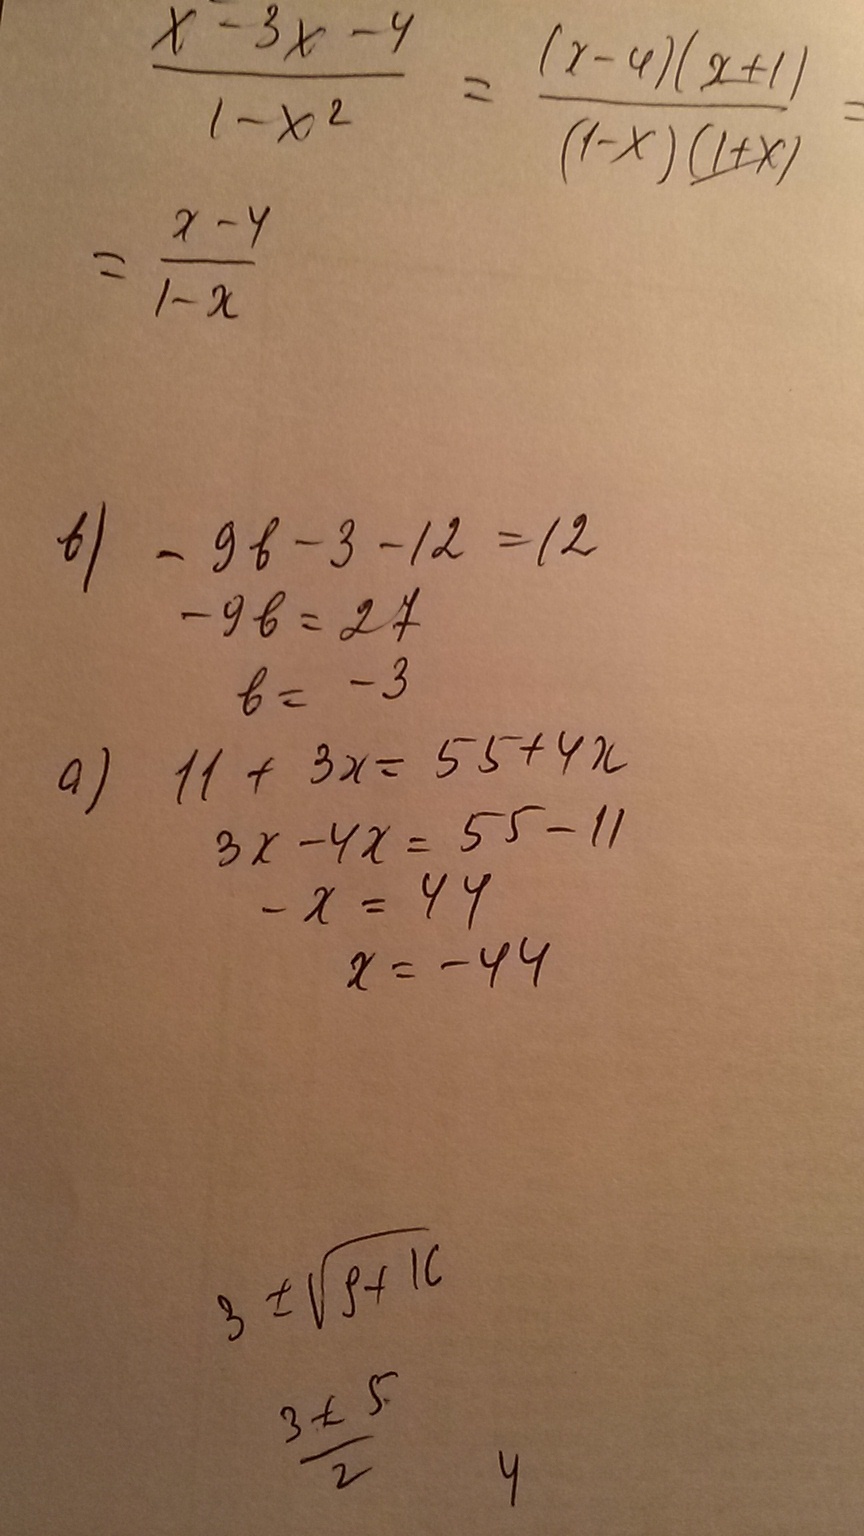 x - 3x - 4 / 1 - x² = (x-4)(x+1) / (1-x)(1+x) =
= x-4 / 1-x
в) - 9в - 3 - 12 = 12
-9в = 27
в = -3
а) 11 + 3x = 55 + 4x
3x - 4x = 55 - 11
- x = 44
x = -44
3 ± √9+16
3 ± 5 / 2 4